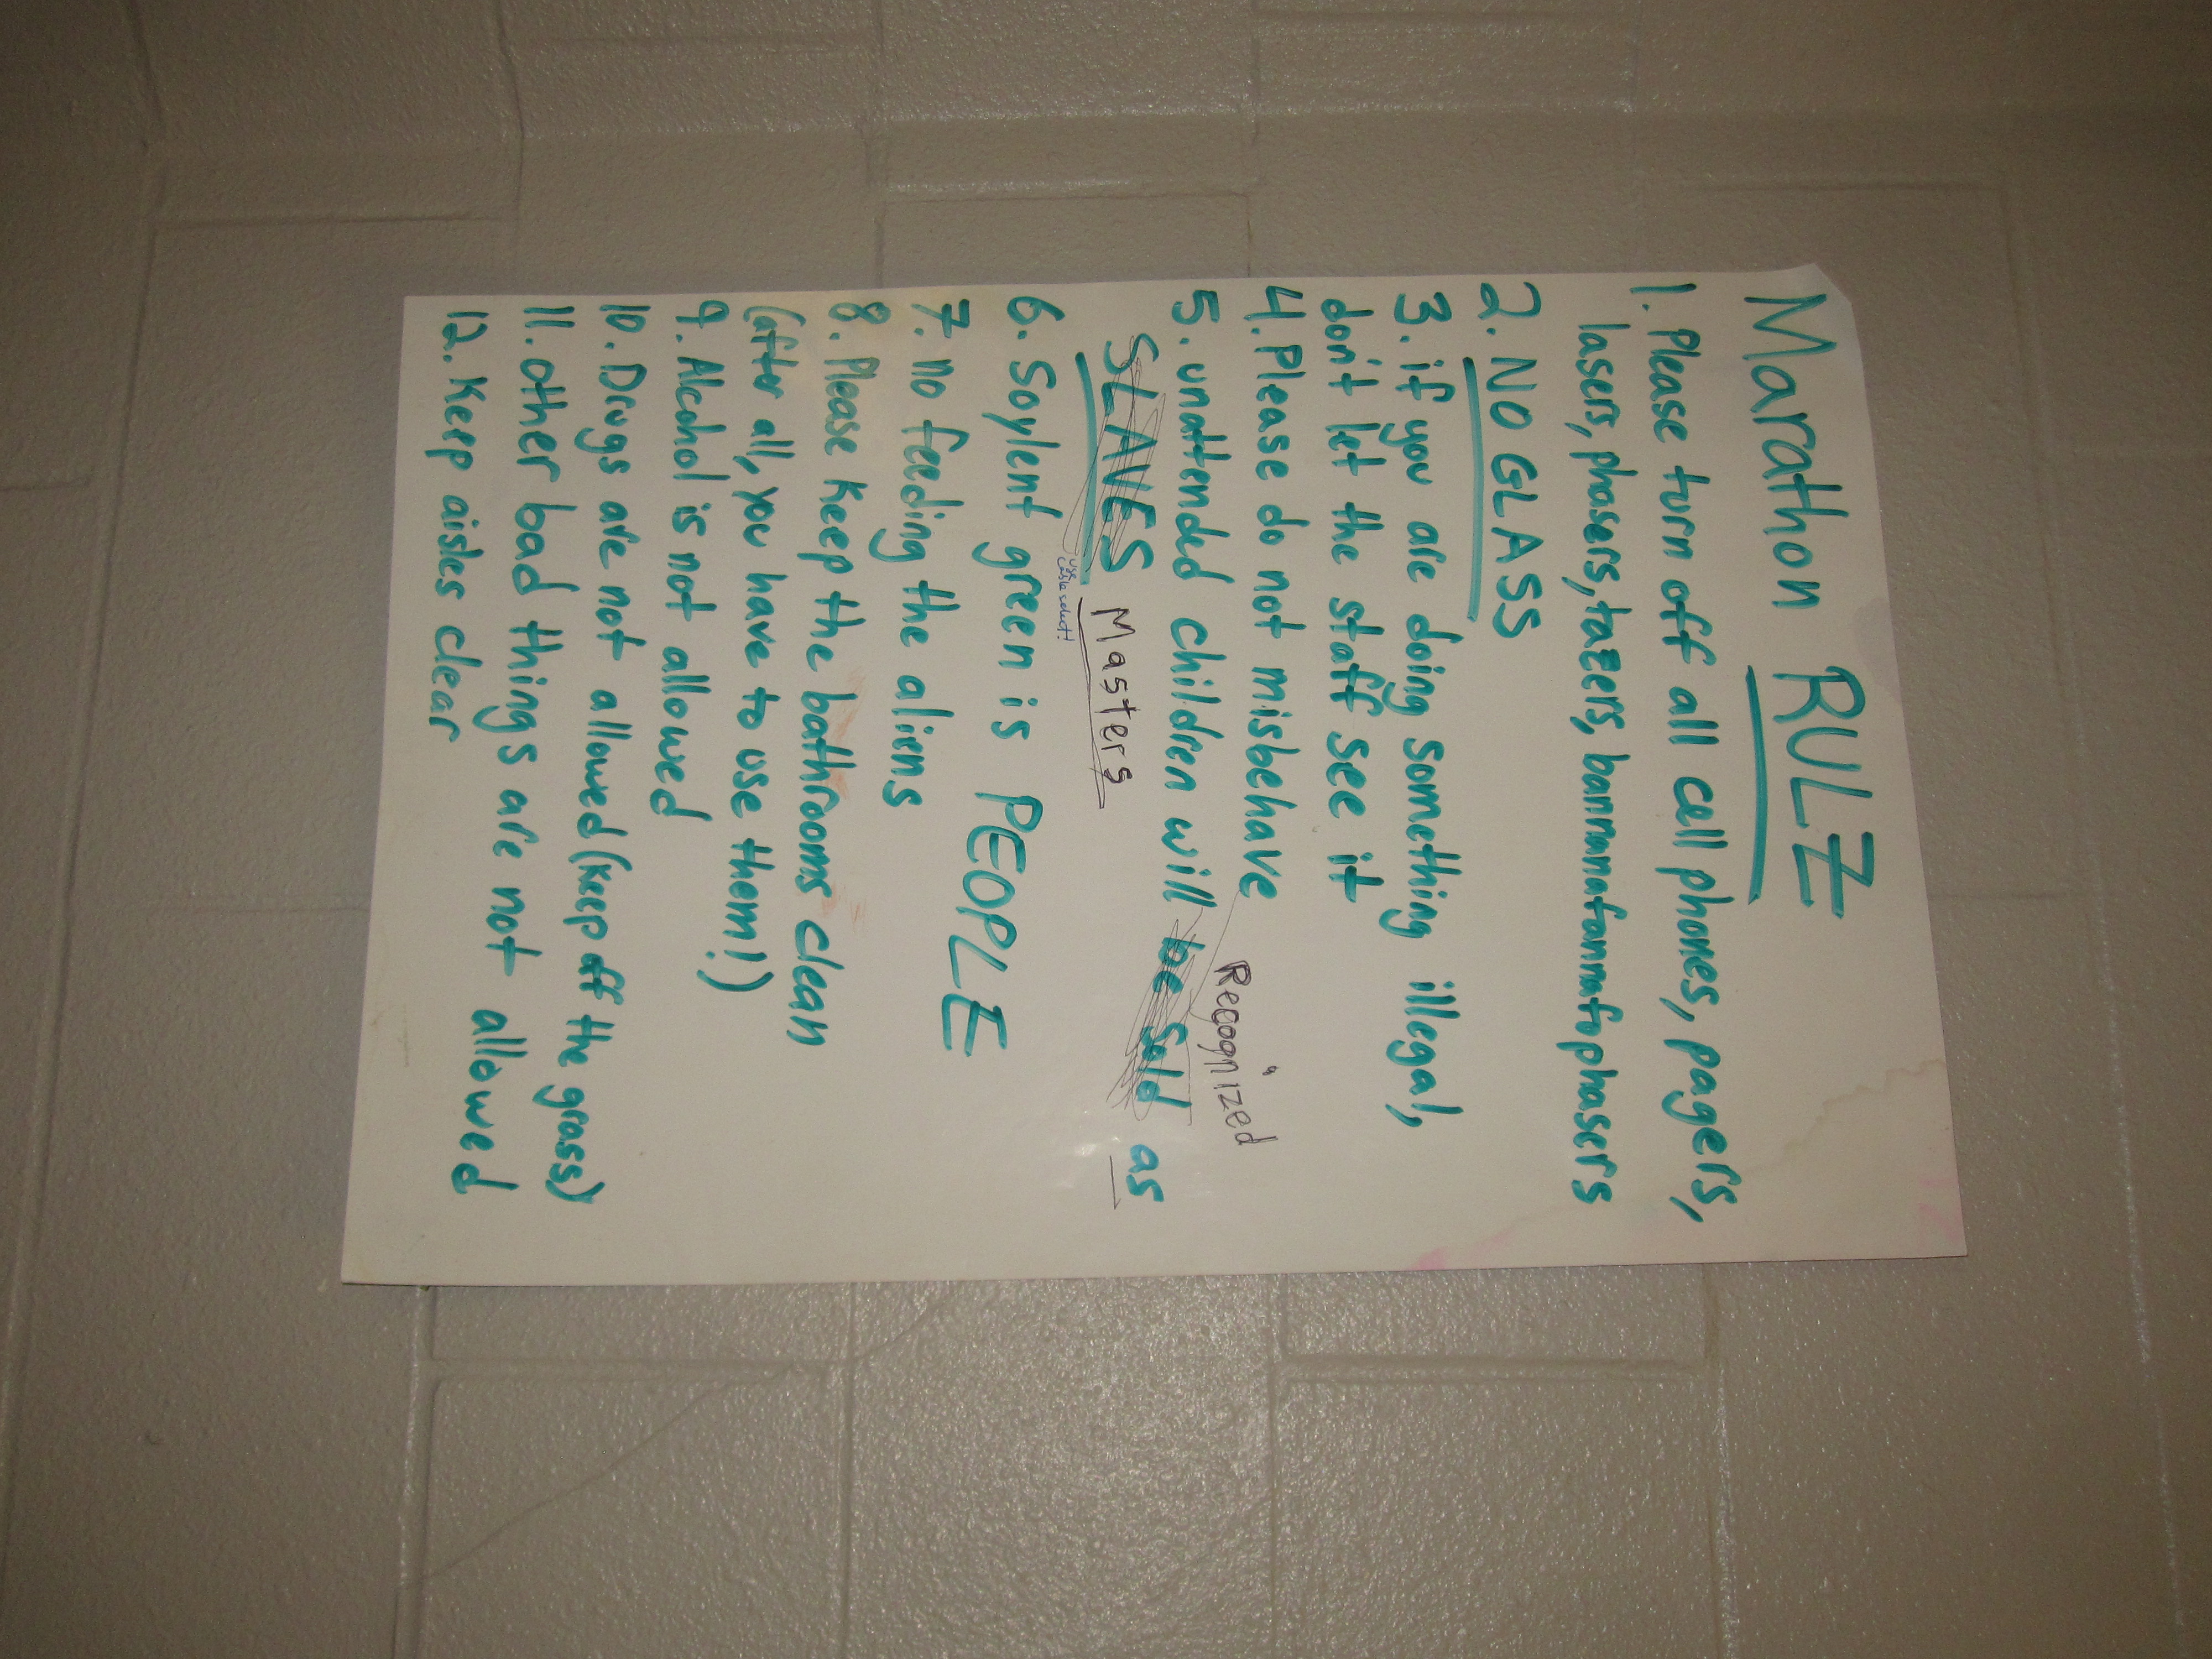 Marathon RULZ
1. Please turn off all cell phones, pagers,
lasers, phasers, tazers, bannanafannafophasers
2. NO GLASS
3. if you are doing something illegal,
don't let the staff see it
4. Please do not misbehave
Recognized
5. unattended children will be sold as
SLAVES Masters
6. Soylent green is PEOPLE
7. no feeding the aliens
8. Please keep the bathrooms clean
(after all, you have to use them!)
9. Alcohol is not allowed
10. Drugs are not allowed (keep off the grass)
11. other bad things are not allowed
12. Keep aisles clear